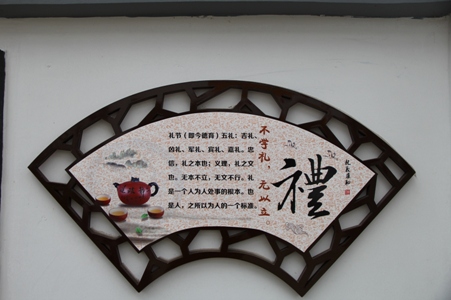 礼节（即今德育）五礼：吉礼、
凶礼、军礼、宾礼、嘉礼。忠
信，礼之本也；义理，礼之文
也。无本不立，无文不行。礼
是一个人为人处事的根本。也
是人，之所以为人的一个标准。
不学礼，无以立。
禮